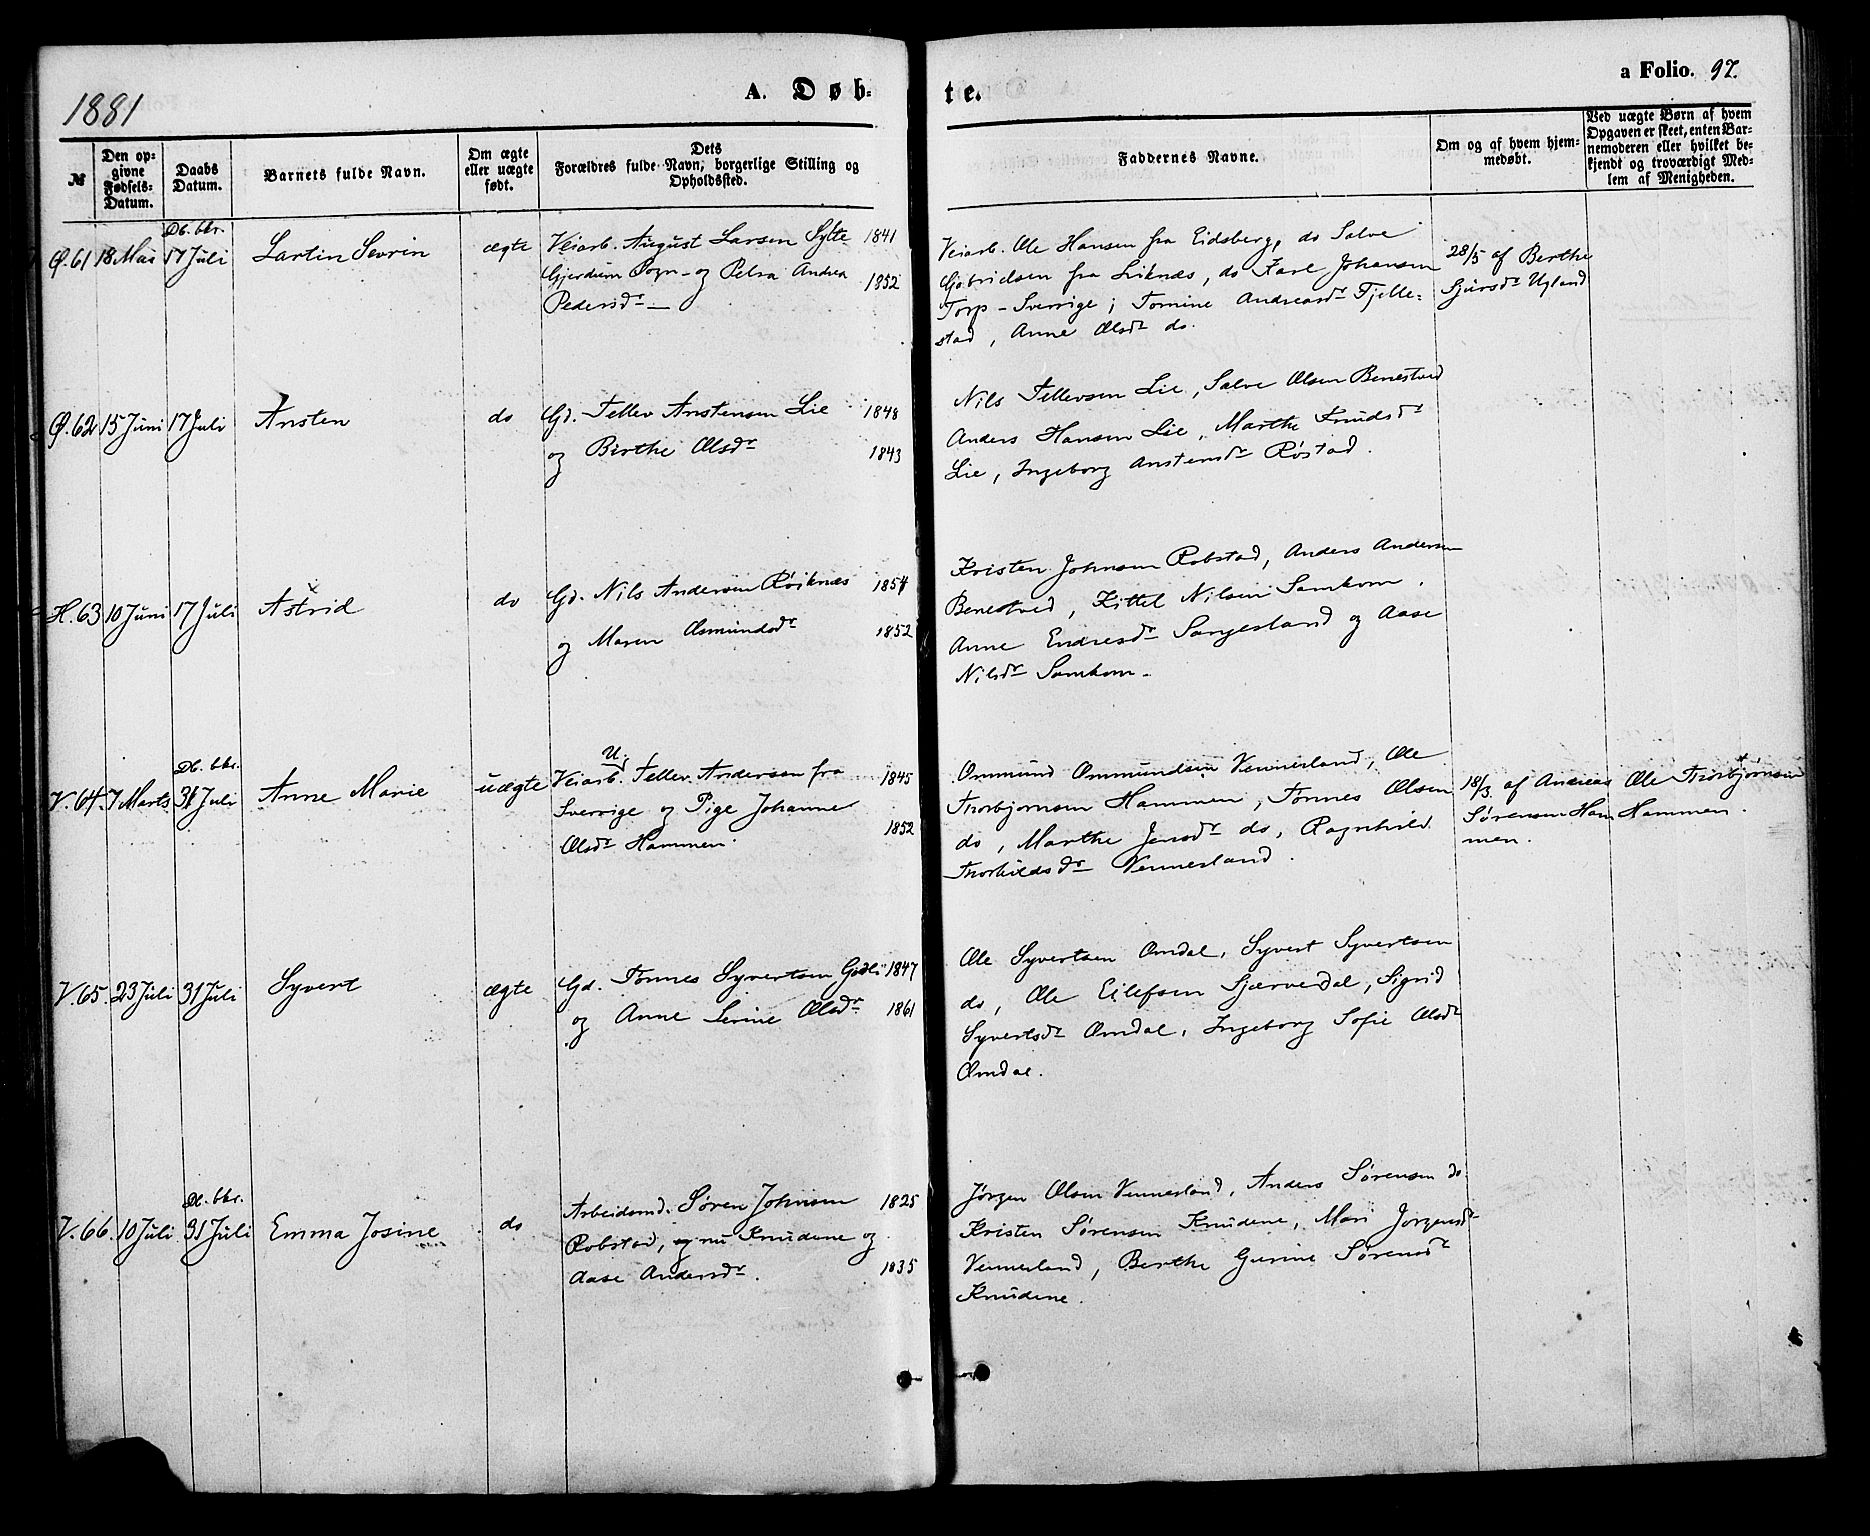 1881
A. Døb-
te.
a Folio. 97.
№
Den op-
givne
Fødsels-
Datum.
Daabs
Datum.
Barnets fulde Navn.
Om ægte
eller uægte
født.
Dets
Forældres fulde Navn, borgerlige Stilling og
Opholdssted.
Faddernes Navne.
Om og af hvem hjem-
medøbt.
Ved uægte Børn af hvem
Opgaven er skeet, enten Bar-
nemoderen eller hvilket be-
kjendt og troværdigt Med-
lem af Menigheden.
Db. bkr.
Ø.61 18 Mai 17 Juli Lartin Sevrin ægte
Veiarb. August Larsen Sylte 1841
Gjerdum Sogn - og Petra Andrea 1852
Pedersdr —
Veiarb. Ole Hansen fra Eidsberg, do Salve
Gabrielsen fra Liknæs, do Karl Johansen
Torp - Sverrige; Tomine Andreasdr Fjelle-
stad, Anne Olsdr do.
28/5 af Berthe
Sjursdr Ugland
Ø.62 15 Juni 17 Juli Ansten do
Gd. Tellev Anstensen Lie 1848
og Birthe Olsdr 1843
Nils Tellevsen Lie, Salve Olsen Benestved
Anders Hansen Lie, Marthe Knudsdr
Lie, Ingeborg Anstensdr Røstad.
H.63 10 Juni 17 Juli Astrid do
Gd. Nils Andersen Røiknæs 1854
og Maren Osmundsdr 1852
Kristen Johnsen Robstad, Anders Andersen
Benestved, Kittel Nilsen Samkom.
Anne Endresdr Sangesland og Aase
Nilsdr Samkom.
Db. bkr.
V.64 7 Marts 31 Juli Anne Marie uægte
U.
Veiarb. Tellev Andersen fra 1845
Sverrige og Pige Johanne
Olsdr Hammen. 1852
Ommund Ommundsen Vennerland, Ole
Thorbjørnsen Hammen, Tønnes Olsen
do, Marthe Jensdr do, Ragnhild
Thorkildsdr Vennerland.
18/3 af Andreas
Sørensen Ham
men.
Ole Thorbjørnsen
Hammen.
V.65. 23 Juli 31 Juli Syvert ægte
Gd. Tønnes Syvertsen Godli 1847
og Anne Serine Olsdr 1861
Ole Syvertsen Omdal, Syvert Syvertsen
do, Ole Eilefsen Sjærverdal, Sigrid
Syvertsdr Omdal, Ingeborg Sofie Olsdr
Omdal.
Db. bkr.
V.66. 10 Juli 31 Juli Emma Josine do
Arbeidsmd. Søren Johnsen 1825
Robstad, og nu Knudene og
Aase Andersdr. 1835
Jørgen Olsen Vennerland, Anders Sørensen do.
Kristen Sørensen Knudene, Mari Jørgensdr
Vennerland, Berthe Gurine Sørensdr
Knudene.